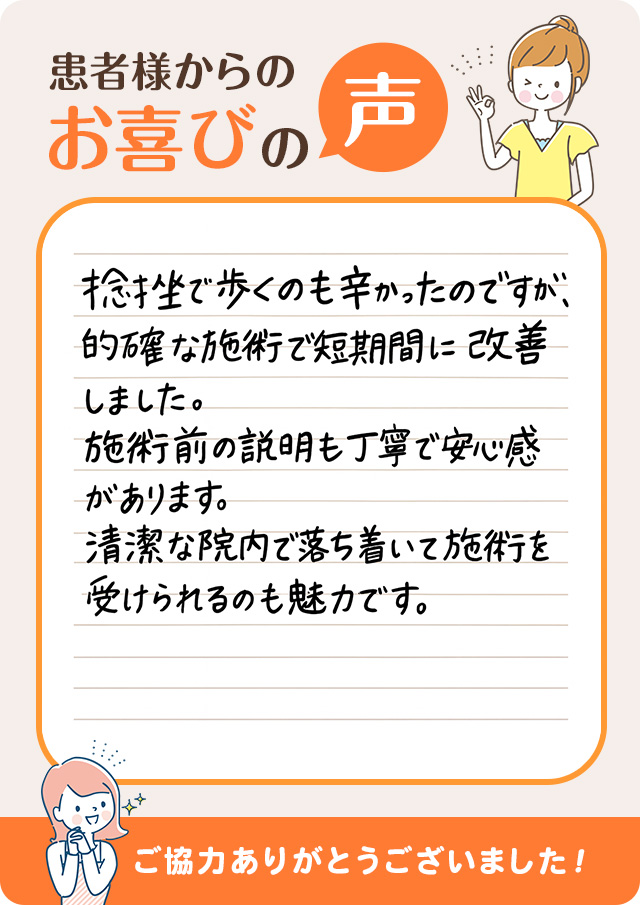 患者様からの
お喜びの声
捻挫で歩くのも辛かったのですが、
的確な施術で短期間に改善
しました。
施術前の説明も丁寧で安心感
があります。
清潔な院内で落ち着いて施術を
受けられるのも魅力です。
ご協力ありがとうございました!